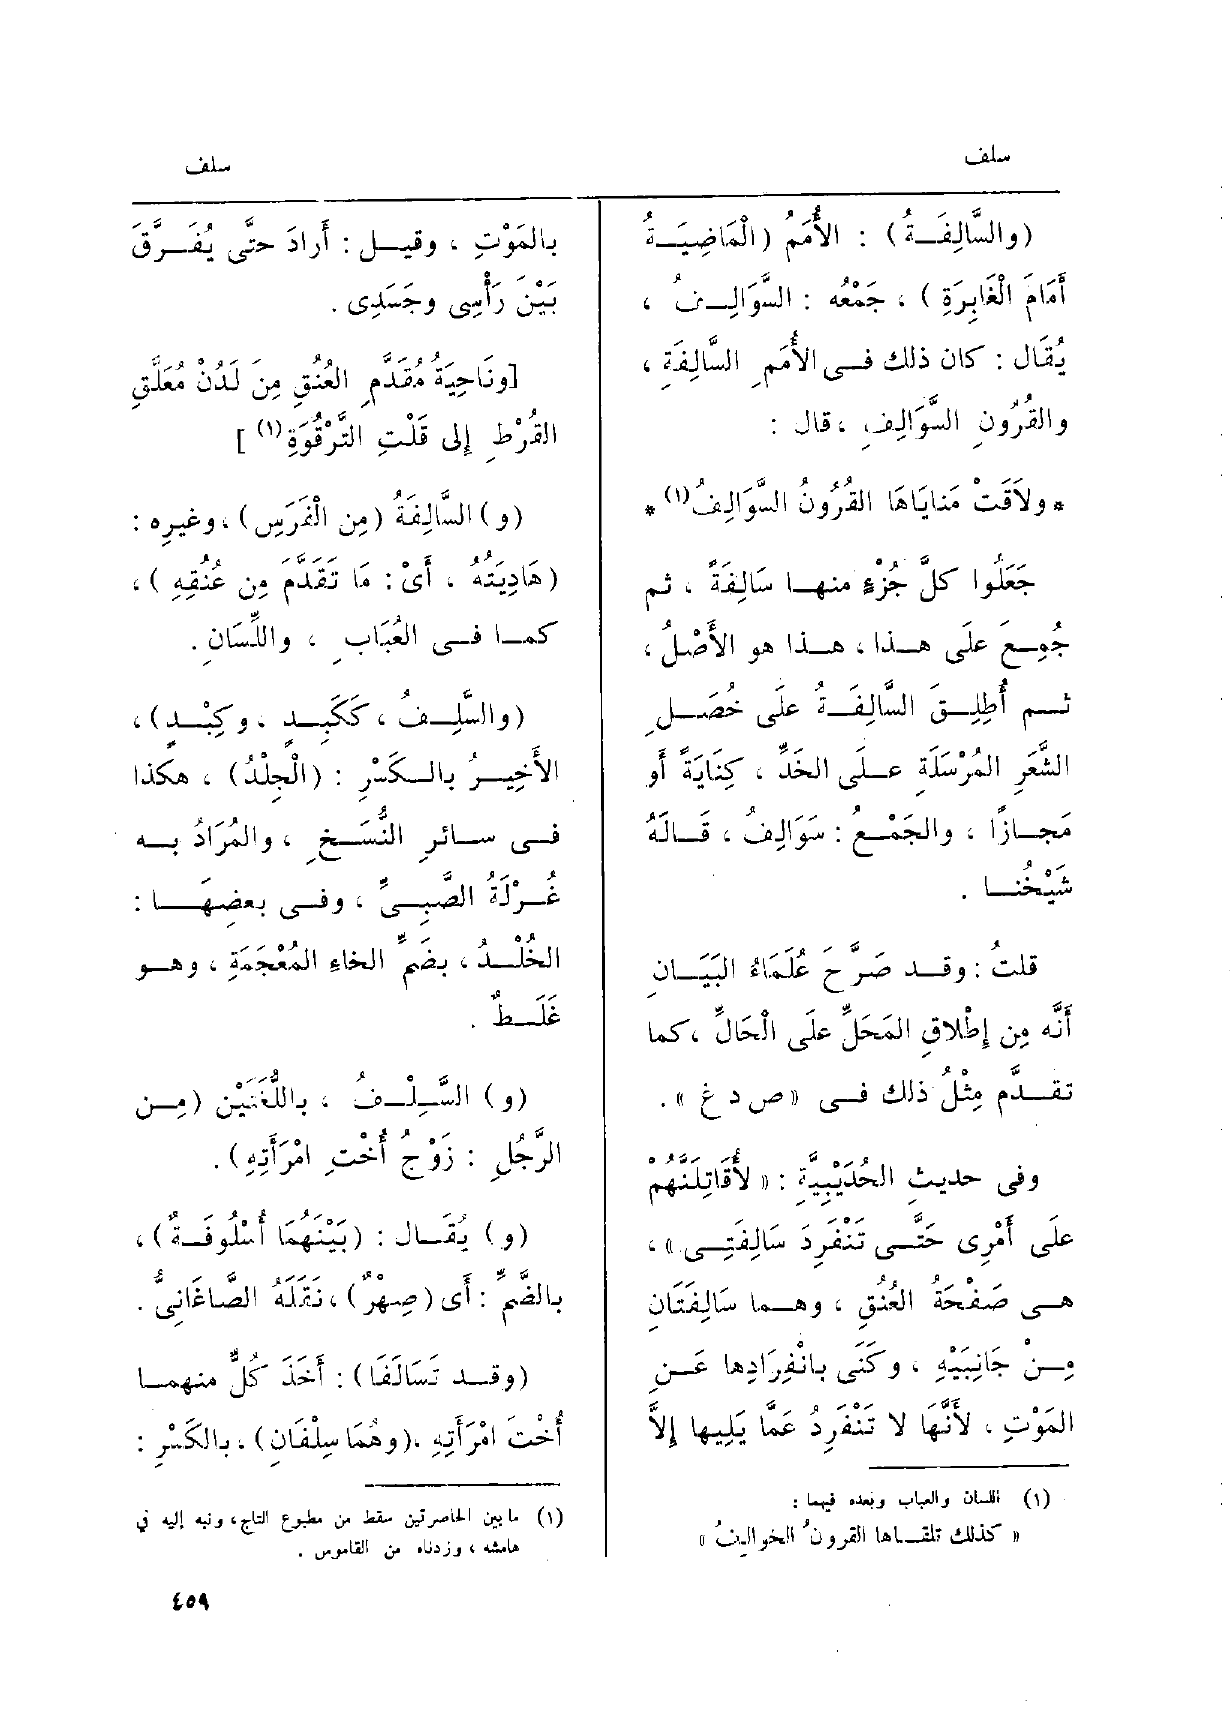 سلف
سلف
(والسَّالِفَةُ) : الأُمَمُ (الْمَاضِيَةُ
أَمَامَ الْغَابِرَةِ) ، جَمْعُه : السَّوَالِفُ ،
يُقَال : كان ذلك فى الأُمَمِ السَّالِفَةِ ،
والقُرُونِ السَّوَالِفِ ، قال :
* ولاَقَتْ مَنايَاهَا القُرُونُ السَّوَالِفُ(١) *
جَعَلُوا كلَّ جُزْءٍ منها سَالِفَةً ، ثم
جُمِعَ علَى هذا ، هذا هو الأَصْلُ ،
ثم أُطلِقَ السَّالِفَةُ علَى خُصَلِ
الشَّعَرِ المُرْسَلَةِ علَى الخَدِّ ، كِنَايَةً أَو
مَجازًا ، والجَمْعُ : سَوَالِفُ ، قَالَهُ
شَيْخُنا .
قلتُ : وقد صَرَّحَ عُلَمَاءُ البَيَانِ
أَنَّه مِن إِطْلاقِ المَحَلِّ علَى الْحَالِّ ، كما
تقدَّم مِثْلُ ذلك فى « ص د غ » .
وفى حديثِ الحُدَيْبِيَّةِ : « لأُقَاتِلَنَّهُمْ
علَى أَمْرِى حَتَّى تَنْفَرِدَ سَالِفَتِى » ،
هى صَفْحَةُ العُنُقِ ، وهما سَالِفَتَانِ
مِنْ جَانِبَيْهِ ، وكَنَى بانْفِرَادِها عَنِ
المَوْتِ ، لأَنَّهَا لا تَنْفَرِدُ عَمَّا يَلِيها إِلاَّ
(١) اللسان والعباب وبعده فيهما :
« كذلك تلقاها القرونُ الخوالِفُ »
بالمَوْتِ ، وقيل : أَرادَ حتَّى يُفَرَّقَ
بَيْنَ رَأْسِى وجَسَدِى .
[ونَاحِيَةُ مُقَدَّمِ العُنُقِ مِنَ لَدُنْ مُعَلَّقِ
القُرْطِ إِلى قَلْتِ التَّرْقُوَةِ(١)]
(و) السَّالِفَةُ (مِن الْفَرَسِ) ، وغيرِه :
(هَادِيَتُهُ ، أَىْ : مَا تَقَدَّمَ مِن عُنُقِهِ) ،
كما فى العُبَابِ ، واللِّسَانِ .
(والسَّلِفُ ، كَكَبِدٍ ، وكِبْدٍ) ،
الأَخِيرُ بالكَسْرِ : (الْجِلْدُ) ، هكذا
فى سائرِ النُّسَخِ ، والمُرَادُ به
غُرْلَةُ الصَّبِىِّ ، وفى بعضِهَا :
الخُلْدُ ، بضَمِّ الخاءِ المُعْجَمَةِ ، وهو
غَلَطٌ .
(و) السَّلِفُ ، باللُّغَتَيْن (مِن
الرَّجُلِ : زَوْجُ أُخْتِ امْرَأَتِهِ) .
(و) يُقَال : (بَيْنَهُمَا أُسْلُوفَةٌ) ،
بالضَّمِّ : أَى (صِهْرٌ) ، نَقَلَهُ الصَّاغَانِىُّ .
(وقد تَسَالَفَا) : أَخَذَ كُلٌّ منهما
أُخْتَ امْرَأَتِهِ ، (وهُمَا سِلْفَانِ) ، بالكَسْرِ :
(١) ما بين الحاصرتين سقط من مطبوع التاج ، ونبه إليه في
هامشه ، وزدناه من القاموس .
٤٥٩